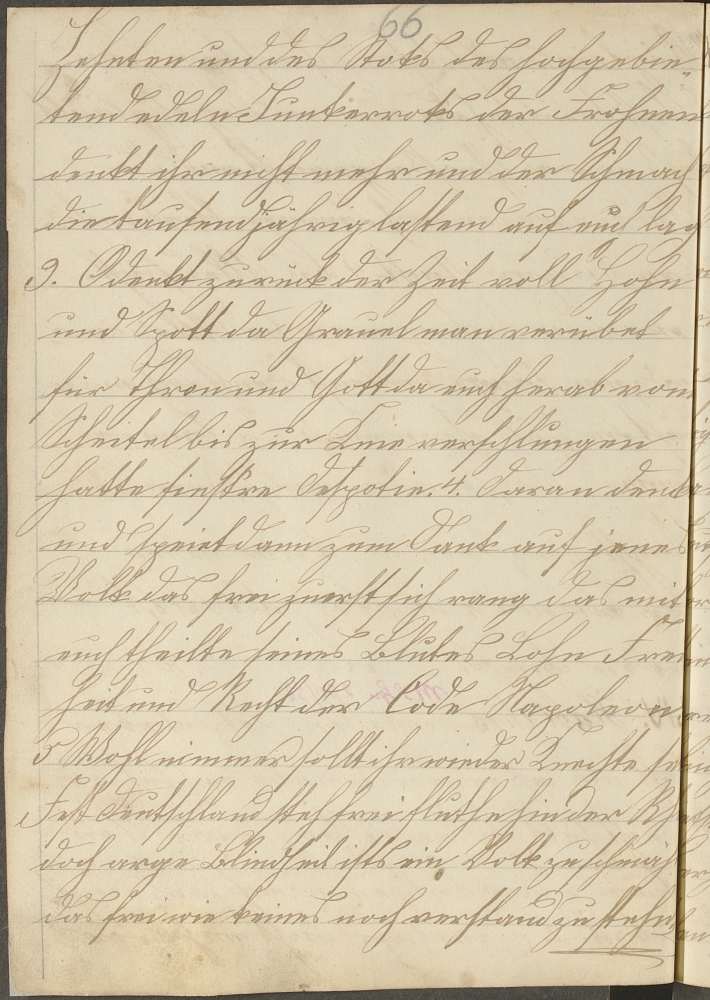 66
Zehnten und des Stoks des hochgebie-
tend edeln Junkerroks der Frohnen
denkt ihr nicht mehr und der Schmach
die tausendjährig lastend auf euch lag
3. O denkt zurück der Zeit voll Hohn
und Spott da Grauel man verübet
für Thron und Gott da euch herab vom
Scheitel bis zur Knie verschlungen
hatte finstre Despotie. 4. Daran denkt
und speiet dann zum Dank auf jenes
Volk das frei zuerst sich rang das mit
euch theilte seines Blutes Lohn Frei
heit und Recht der Code Napoleon
5 Wohl nimmer sollt ihr wieder Knechte sein
Fest Deutschland steh frei fluthe hin der Rhein
doch arge Blindheit ists ein Volk zu schmähn
das frei wie keines noch verstand zu stehn